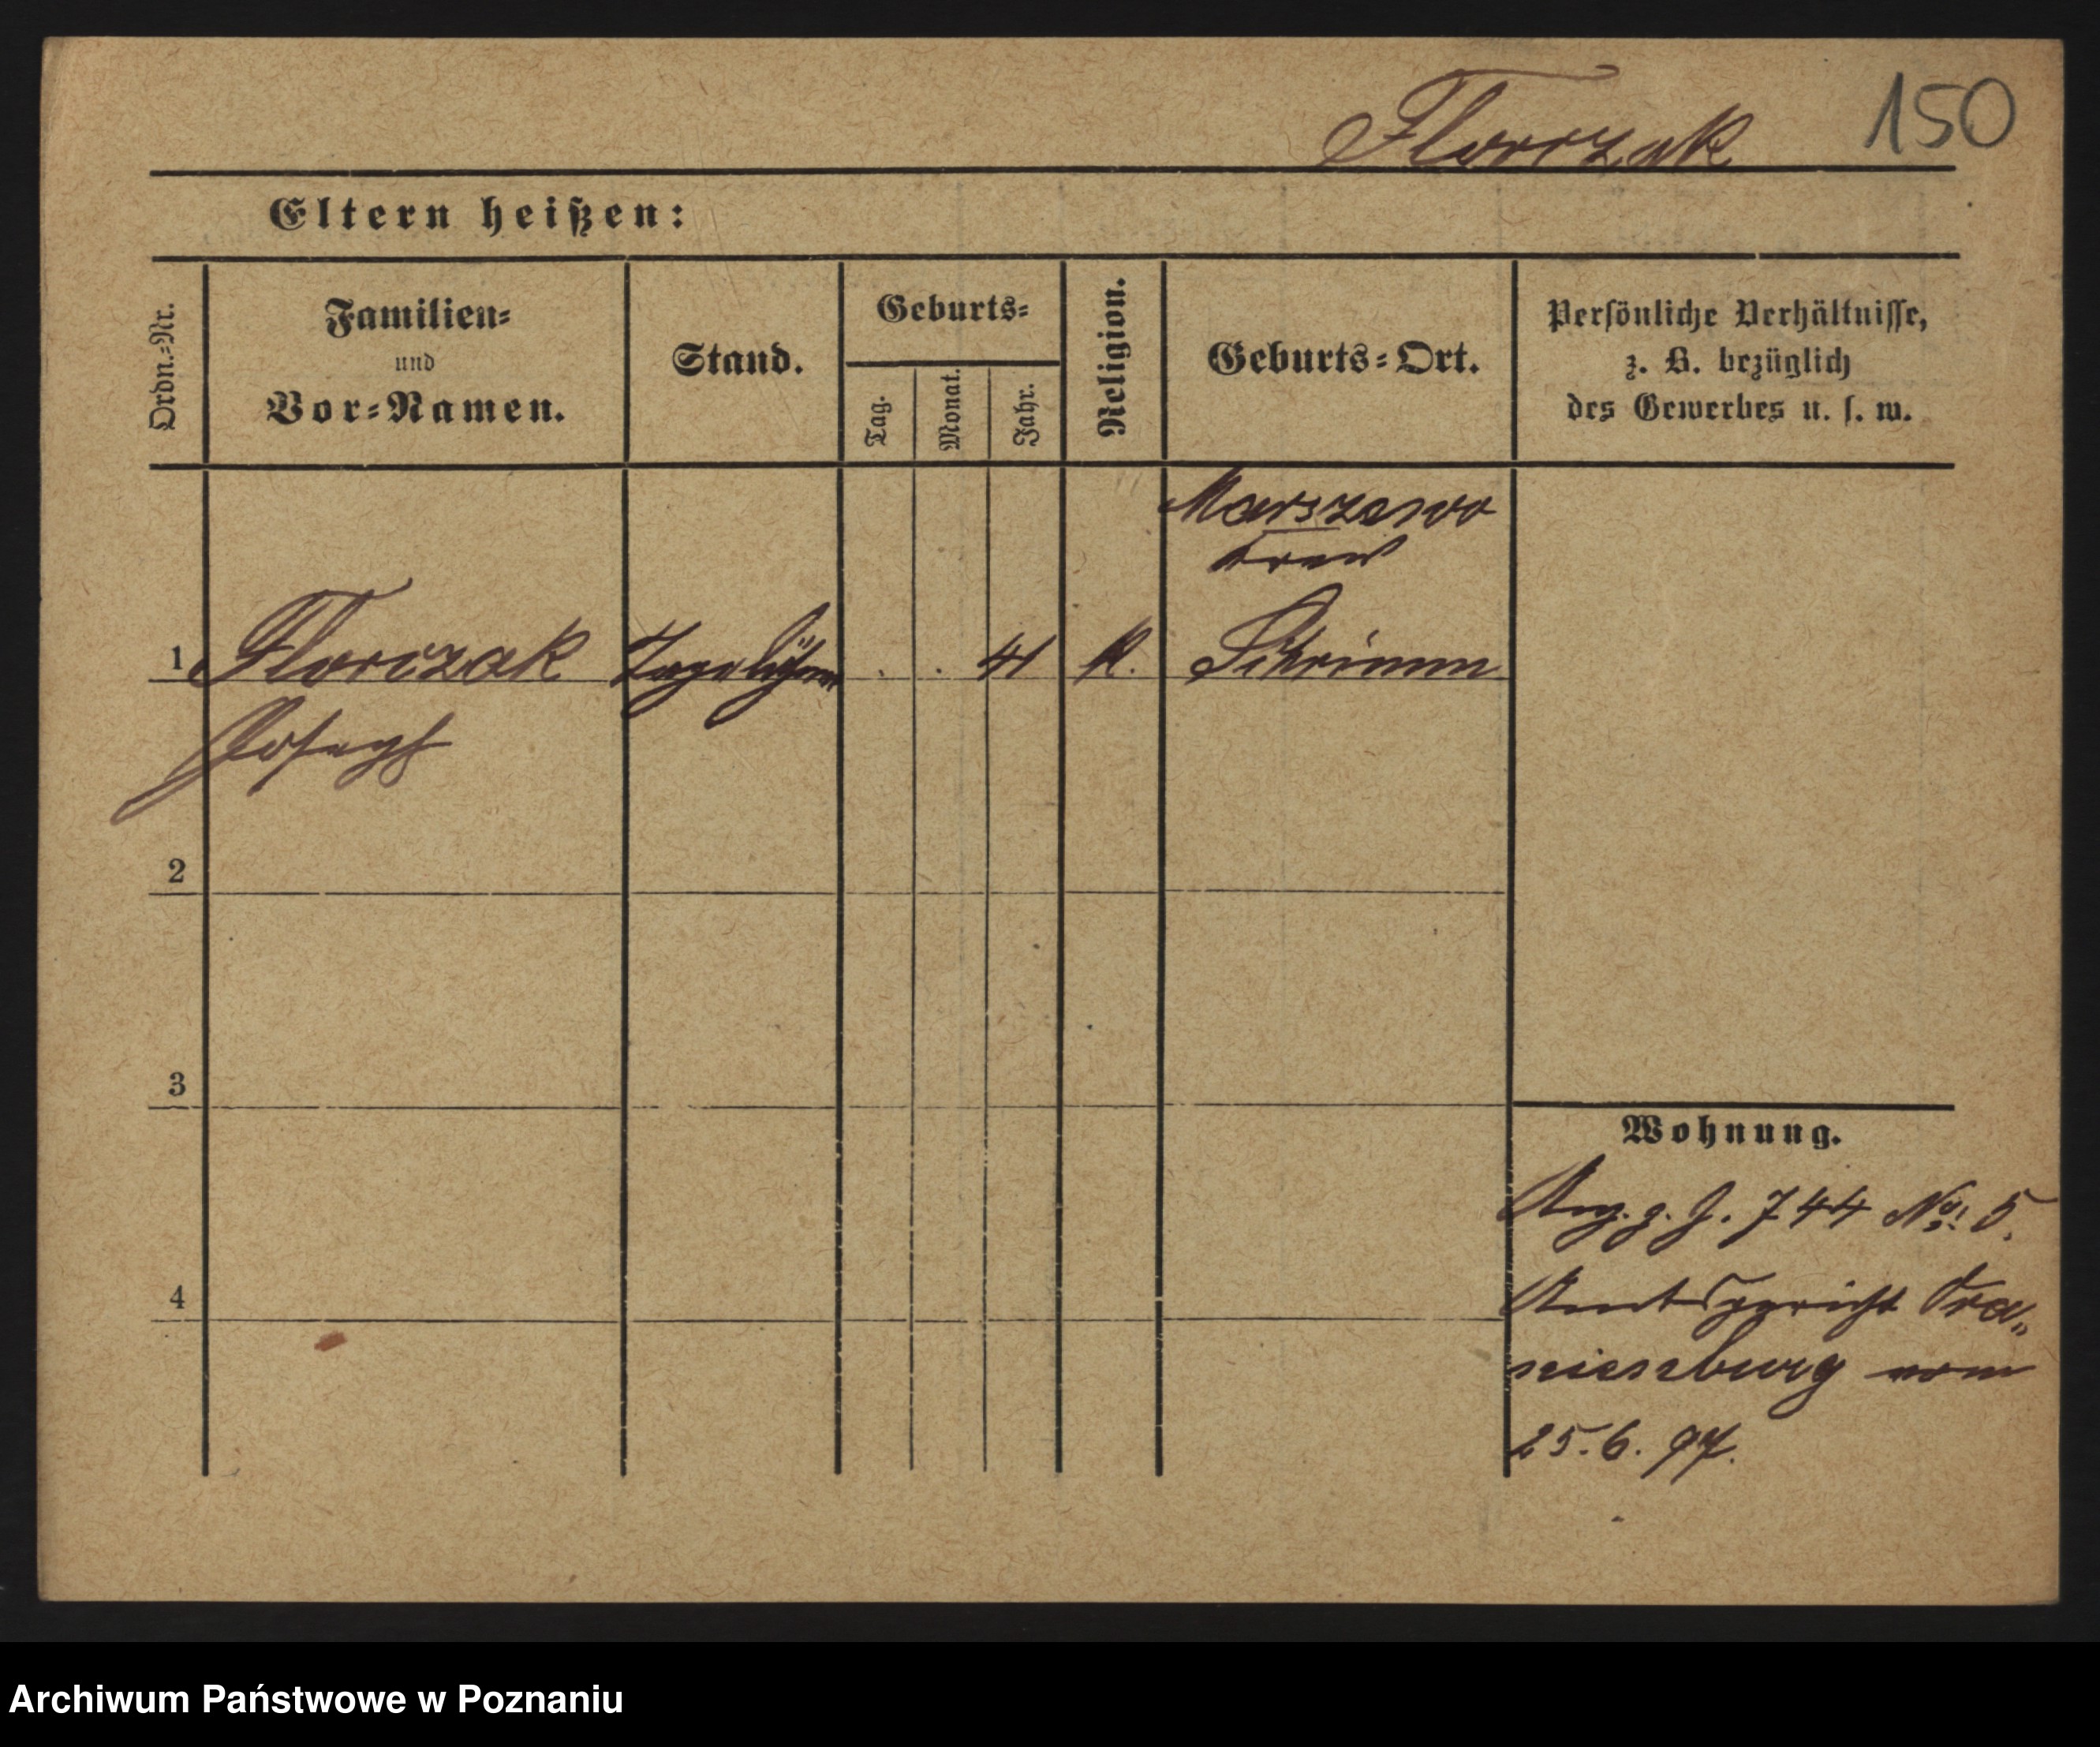 Florczak 150
Eltern heißen:
Ordn.-Nr.
Familien-
und
Vor-Namen.
Stand.
Geburts-
Tag.
Monat.
Jahr.
Religion.
Geburts-Ort.
Persönliche Verhältnisse,
z. B. bezüglich
des Gewerbes u. s. w.
Marszewo
Kreis
1 Florczak Tagelöhner . . 41 K. Schrimm
Joseph
2
3
4
Wohnung.
J. 744 No. 5.
Amtsgericht Ora„
nienburg vom
25. 6. 97.
Archiwum Państwowe w Poznaniu